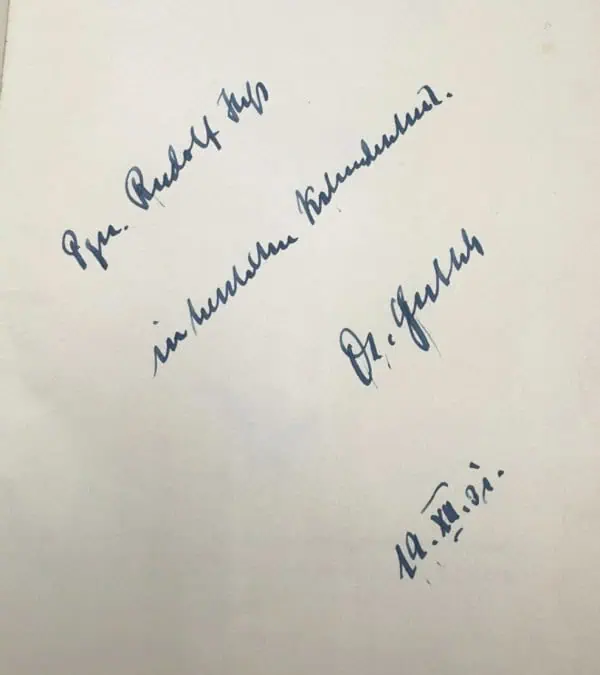 Pgn. Rudolf Heß
in herzlicher Verbundenheit.
Dr. Goebbels
19.XII.31.